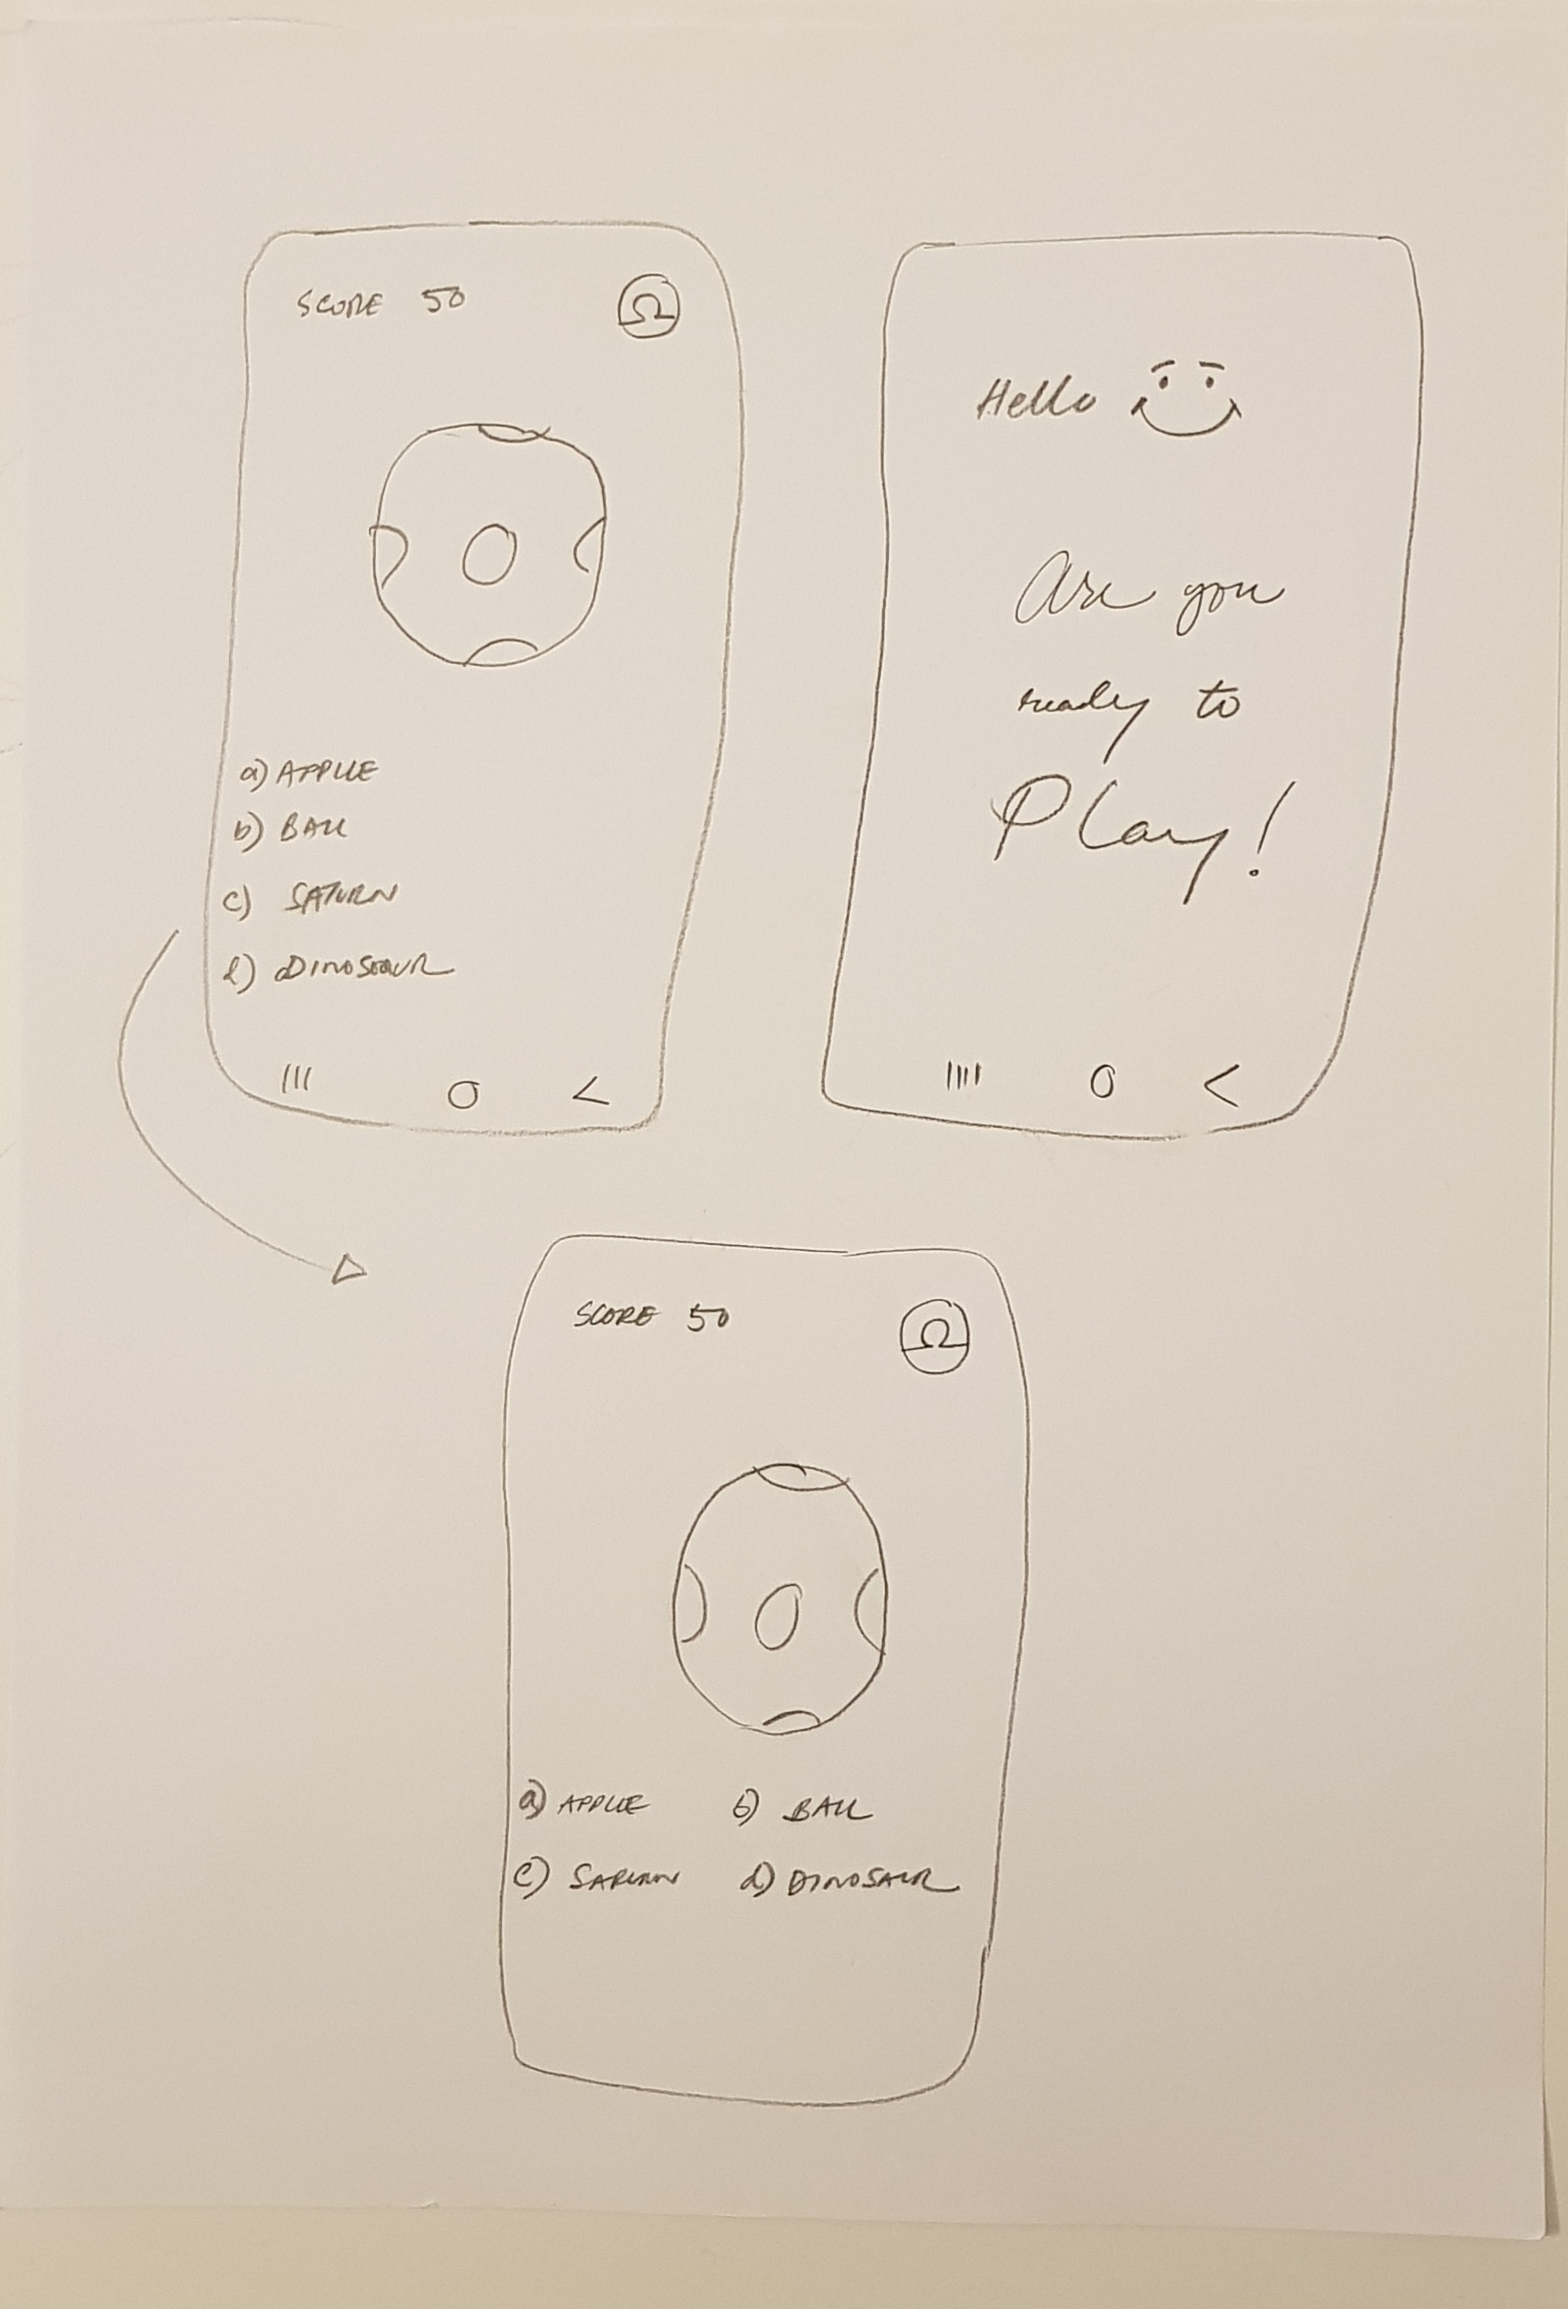 SCORE 50
a) APPLE
b) BALL
c) SATURN
d) DINOSAUR
Hello
Are you
ready to
Play!
SCORE 50
a) APPLE b) BALL
c) SATURN d) DINOSAUR